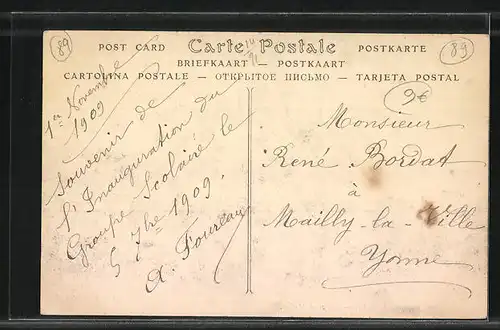 89
14
POST CARD Carte Postale POSTKARTE
89
BRIEFKAART — POSTKAART
CARTOLINA POSTALE — ОТКРЫТОЕ ПИСЬМО — TARJETA POSTAL
9€
1er Novembre
1909
Souvenir de
l'Inauguration du
Groupe Scolaire le
5 7bre 1909.
A. Foureau
Monsieur
René Bordat
à
Mailly-la-Ville
Yonne